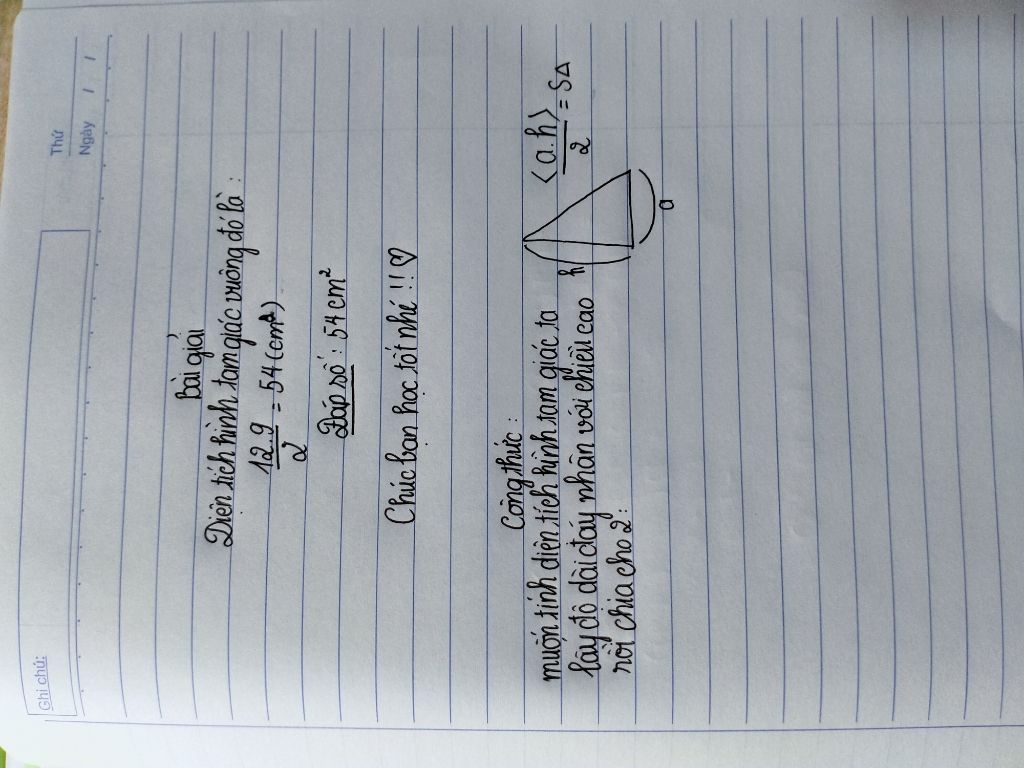 Ghi chú:
Thứ
Ngày / /
Bài giải
Diện tích hình tam giác vuông đó là :
12.9/2 = 54 (cm²)
Đáp số : 54 cm²
Chúc bạn học tốt nhé !! ♡
Công thức :
muốn tính diện tích hình tam giác ta
lấy độ dài đáy nhân với chiều cao
rồi chia cho 2 :
h
a
<a.h>/2 = S△